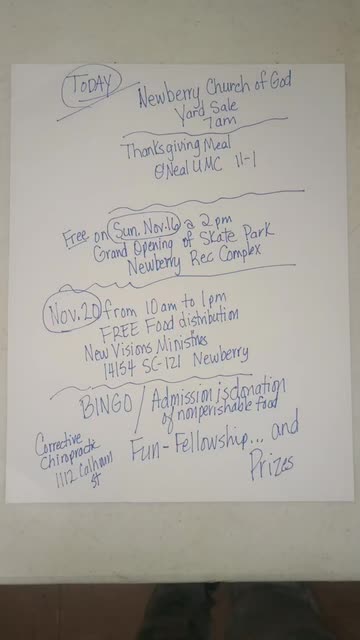 TODAY
Newberry Church of God
Yard Sale
7am
Thanksgiving Meal
O'Neal UMC 11-1
Free on Sun. Nov. 16 @ 2pm
Grand Opening of Skate Park
Newberry Rec Complex
Nov. 20 from 10am to 1pm
FREE Food distribution
New Visions Ministries
14154 SC-121 Newberry
BINGO / Admission is donation
of nonperishable food
Corrective
Chiropractic
1112 Calhoun
St
Fun-Fellowship... and
Prizes